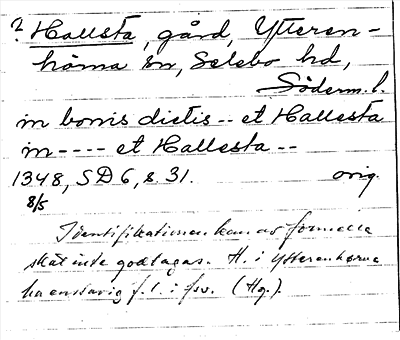 ? Hallesta, gård, Ytteren-
hörna sn, Selebo hd,
Söderm. l.
in bonis dictis -- et Hallesta
in ---- et Hallesta --
1348, SD 6, s. 31. orig.
8/5
Identifikationen kan av formella
skäl inte godtagas. H. i Ytterenhörna
ha enstavig f. l. i fsv. (Hg.).